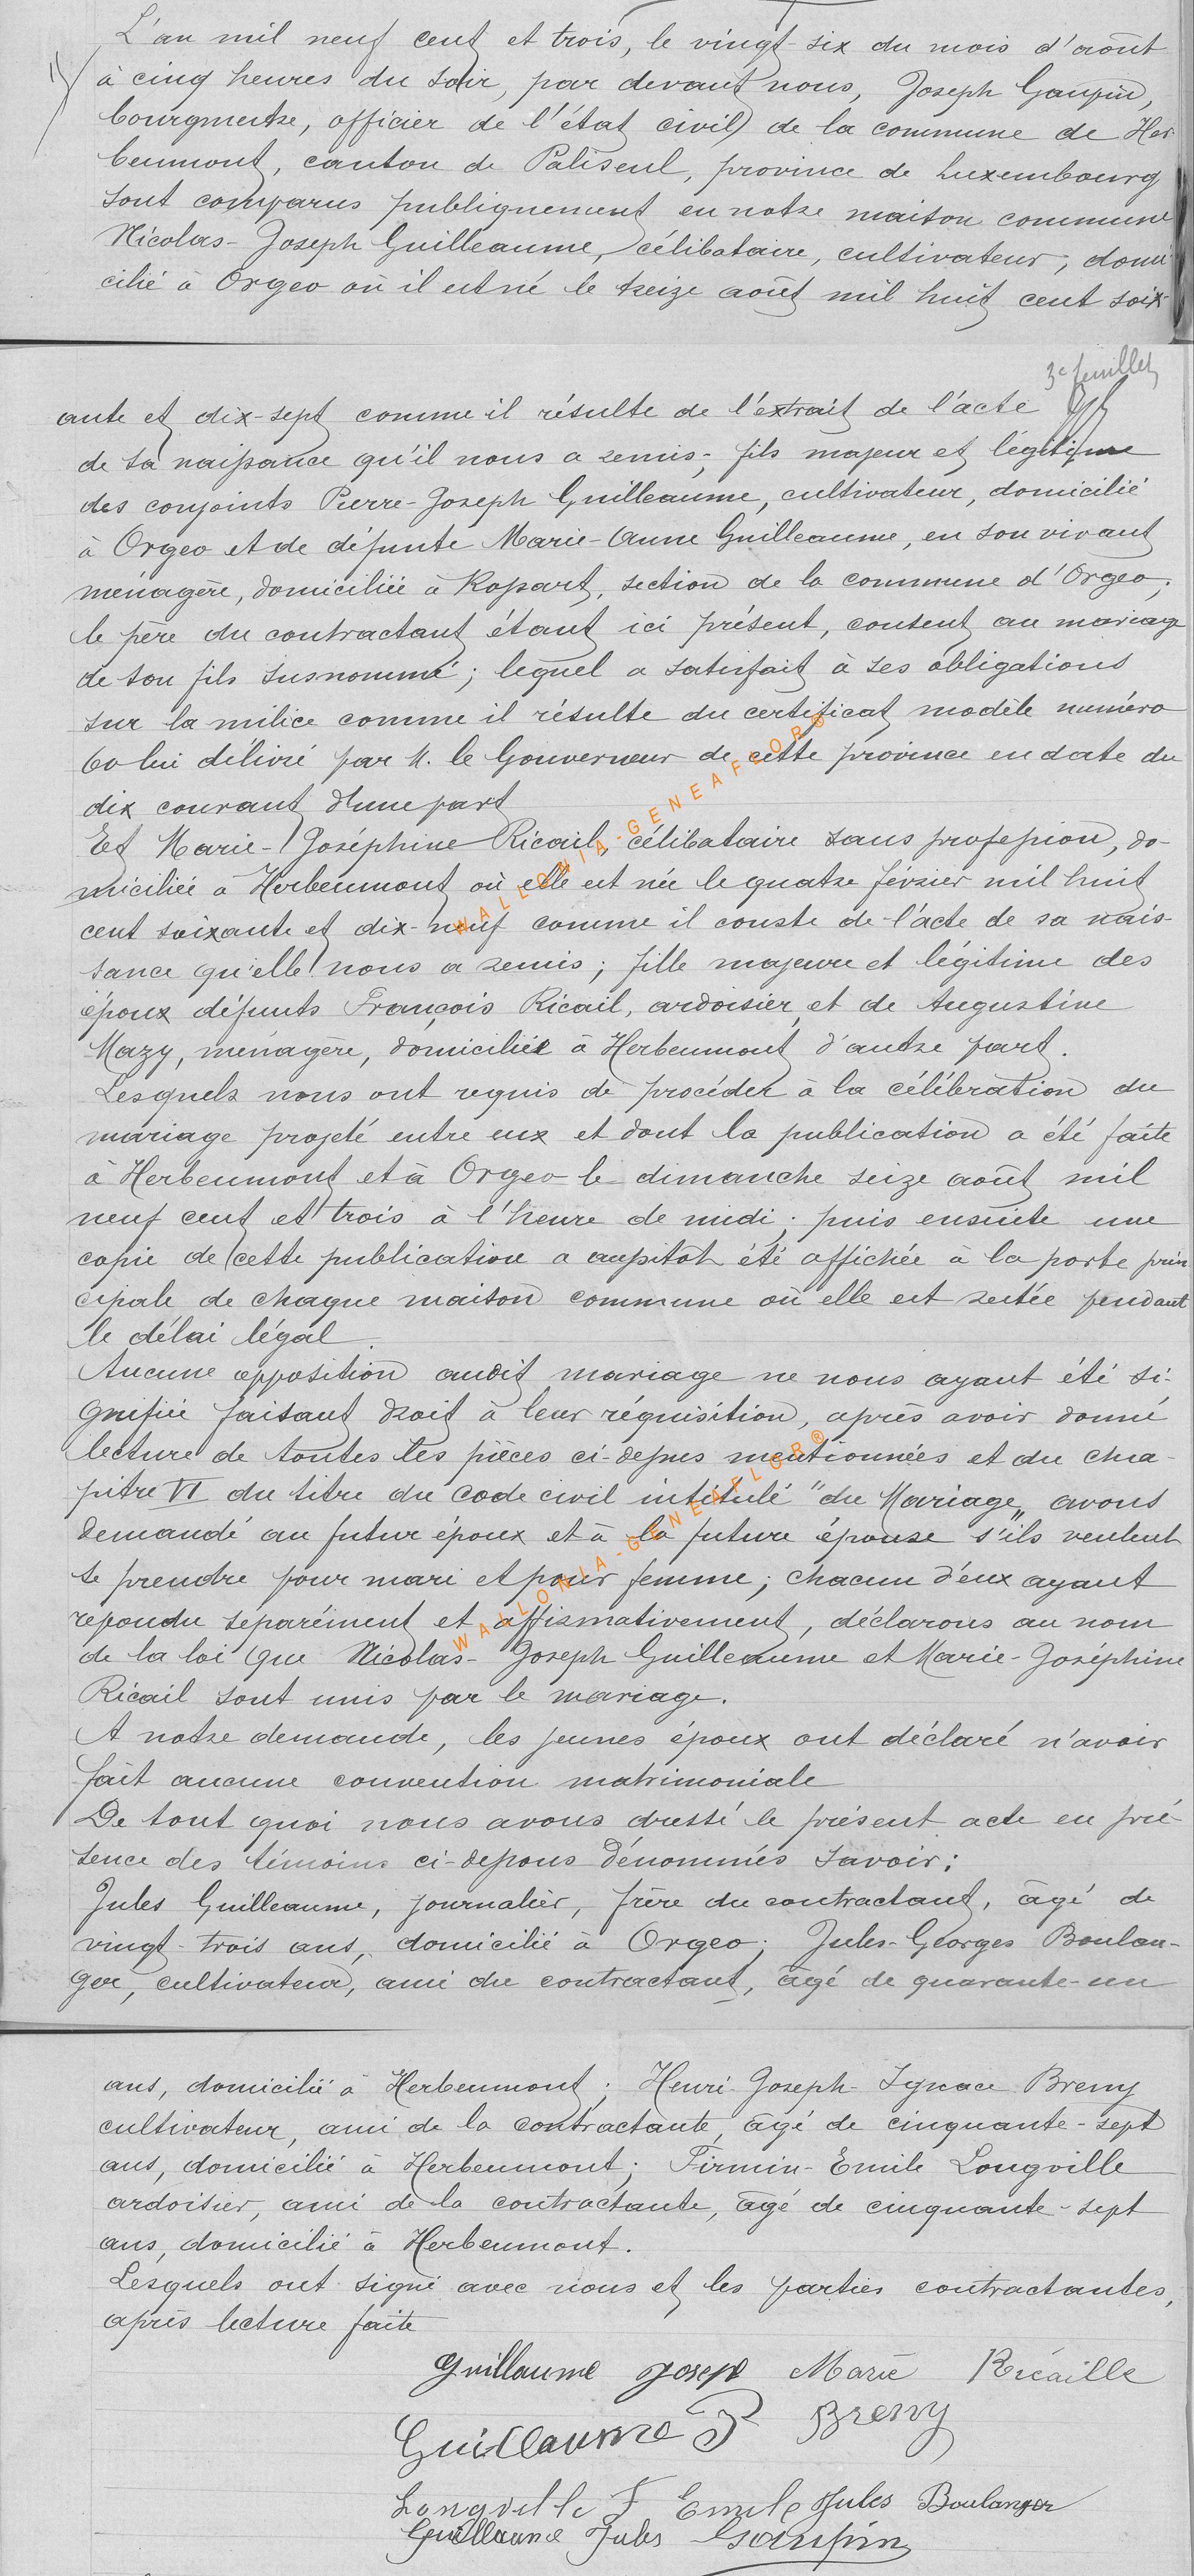 L'an mil neuf cent et trois, le vingt-six du mois d'août
à cinq heures du soir, par devant nous, Joseph Gaupin,
bourgmestre, officier de l'état civil de la commune de Her
beumont, canton de Paliseul, province de Luxembourg
sont comparus publiquement en notre maison commune
Nicolas-Joseph Guilleaume, célibataire, cultivateur, domi
cilié à Orgeo où il est né le treize août mil huit cent soix-
3e feuillet
ante et dix-sept comme il résulte de l'extrait de l'acte
de sa naissance qu'il nous a remis; fils majeur et légitime
des conjoints Pierre-Joseph Guilleaume, cultivateur, domicilié
à Orgeo et de défunte Marie-Anne Guilleaume, en son vivant
ménagère, domiciliée à Rossart, section de la commune d'Orgeo;
le père du contractant étant ici présent, consent au mariage
de son fils susnommé; lequel a satisfait à ses obligations
sur la milice comme il résulte du certificat modèle numéro
60 lui délivré par M. le Gouverneur de cette province en date du
dix courant d'une part
Et Marie-Joséphine Ricail, célibataire sans profession, do-
miciliée à Herbeumont où elle est née le quatre février mil huit
cent soixante et dix-neuf comme il conste de l'acte de sa nais-
sance qu'elle nous a remis; fille majeure et légitime des
époux défunts François Ricail, ardoisier et de Augustine
Mazy, ménagère, domiciliée à Herbeumont d'autre part.
Lesquels nous ont requis de procéder à la célébration du
mariage projeté entre eux et dont la publication a été faite
à Herbeumont et à Orgeo le dimanche seize août mil
neuf cent et trois à l'heure de midi; puis ensuite une
copie de cette publication a aussitôt été affichée à la porte prin
cipale de chaque maison commune où elle est restée pendant
le délai légal
Aucune opposition audit mariage ne nous ayant été si-
gnifiée faisant droit à leur réquisition, après avoir donné
lecture de toutes les pièces ci-dessus mentionnées et du cha-
pitre VI du titre du code civil intitulé "du Mariage„ avons
demandé au futur époux et à la future épouse s'ils veulent
se prendre pour mari et pour femme; chacun d'eux ayant
repondu separément et affirmativement, déclarons au nom
de la loi que Nicolas-Joseph Guilleaume et Marie-Joséphine
Ricail sont unis par le mariage.
A notre demande, les jeunes époux ont déclaré n'avoir
fait aucune convention matrimoniale
De tout quoi nous avons dressé le présent acte en pré-
sence des témoins ci-dessous dénommés savoir:
Jules Guilleaume, journalier, frère du contractant, âgé de
vingt-trois ans, domicilié à Orgeo; Jules-Georges Boulan-
ger, cultivateur, ami du contractant, âgé de quarante-un
ans, domicilié à Herbeumont; Henri-Joseph-Ignace Breny
cultivateur, ami de la contractante, âgé de cinquante-sept
ans, domicilié à Herbeumont; Firmin-Emile Longville
ardoisier, ami de la contractante, âgé de cinquante-sept
ans, domicilié à Herbeumont.
Lesquels ont signé avec nous et les parties contractantes,
après lecture faite
Guillaume Josep Marie Ricaille
Guillaume P Breny
Longville F Emile Jules Boulanger
Guillaume Jules Gaupin
WALLONIA-GENEAFLOR®
WALLONIA-GENEAFLOR®